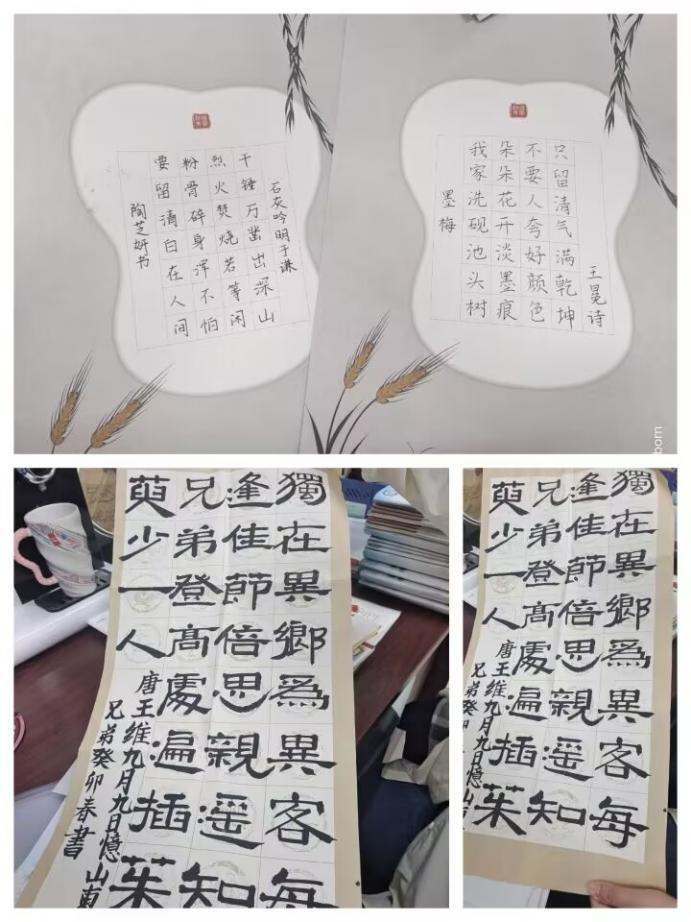 石灰吟明于谦
千锤万凿出深山
烈火焚烧若等闲
粉骨碎身浑不怕
要留清白在人间
陶芝妍书
墨梅
我家洗砚池头树
朵朵花开淡墨痕
不要人夸好颜色
只留清气满乾坤
王冕诗
born
獨在異鄉為異客每
逢佳節倍思親遥知
兄弟登高處遍插茱
萸少一人
唐王维九月九日憶山東
兄弟癸卯春書
獨在異鄉為異客每
逢佳節倍思親遥知
兄弟登高處遍插茱
萸少一人
唐王维九月九日憶山
兄弟癸